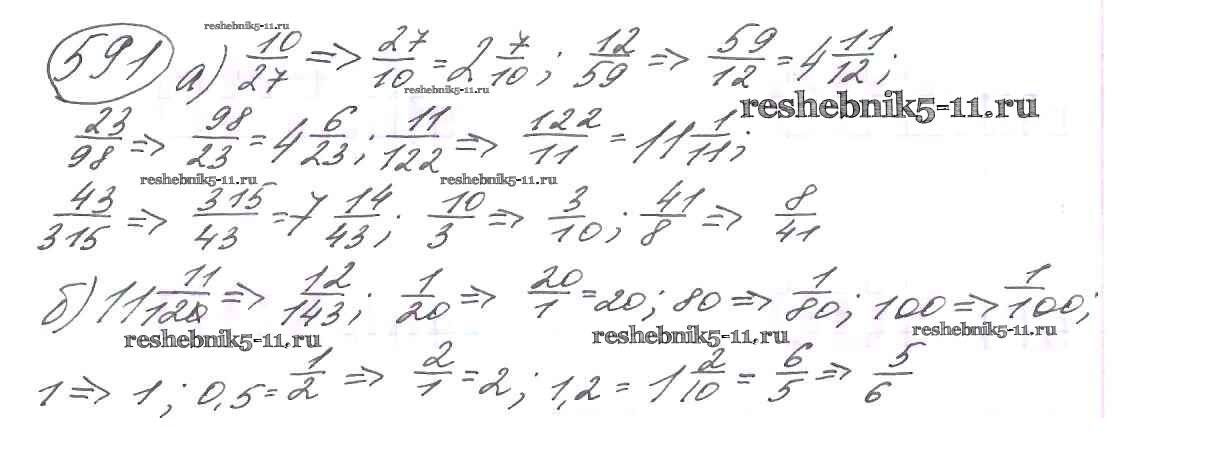 reshebnik5-11.ru
591 а) 10/27 => 27/10 = 2 7/10; 12/59 => 59/12 = 4 11/12;
reshebnik5-11.ru
reshebnik5-11.ru
23/98 => 98/23 = 4 6/23; 11/122 => 122/11 = 11 1/11;
reshebnik5-11.ru reshebnik5-11.ru
43/315 => 315/43 = 7 14/43; 10/3 => 3/10; 41/8 => 8/41
б) 11 11/120 => 12/143; 1/20 => 20/1 = 20; 80 => 1/80; 100 => 1/100;
reshebnik5-11.ru reshebnik5-11.ru reshebnik5-11.ru
1 => 1; 0,5 = 1/2 => 2/1 = 2; 1,2 = 1 2/10 = 6/5 => 5/6